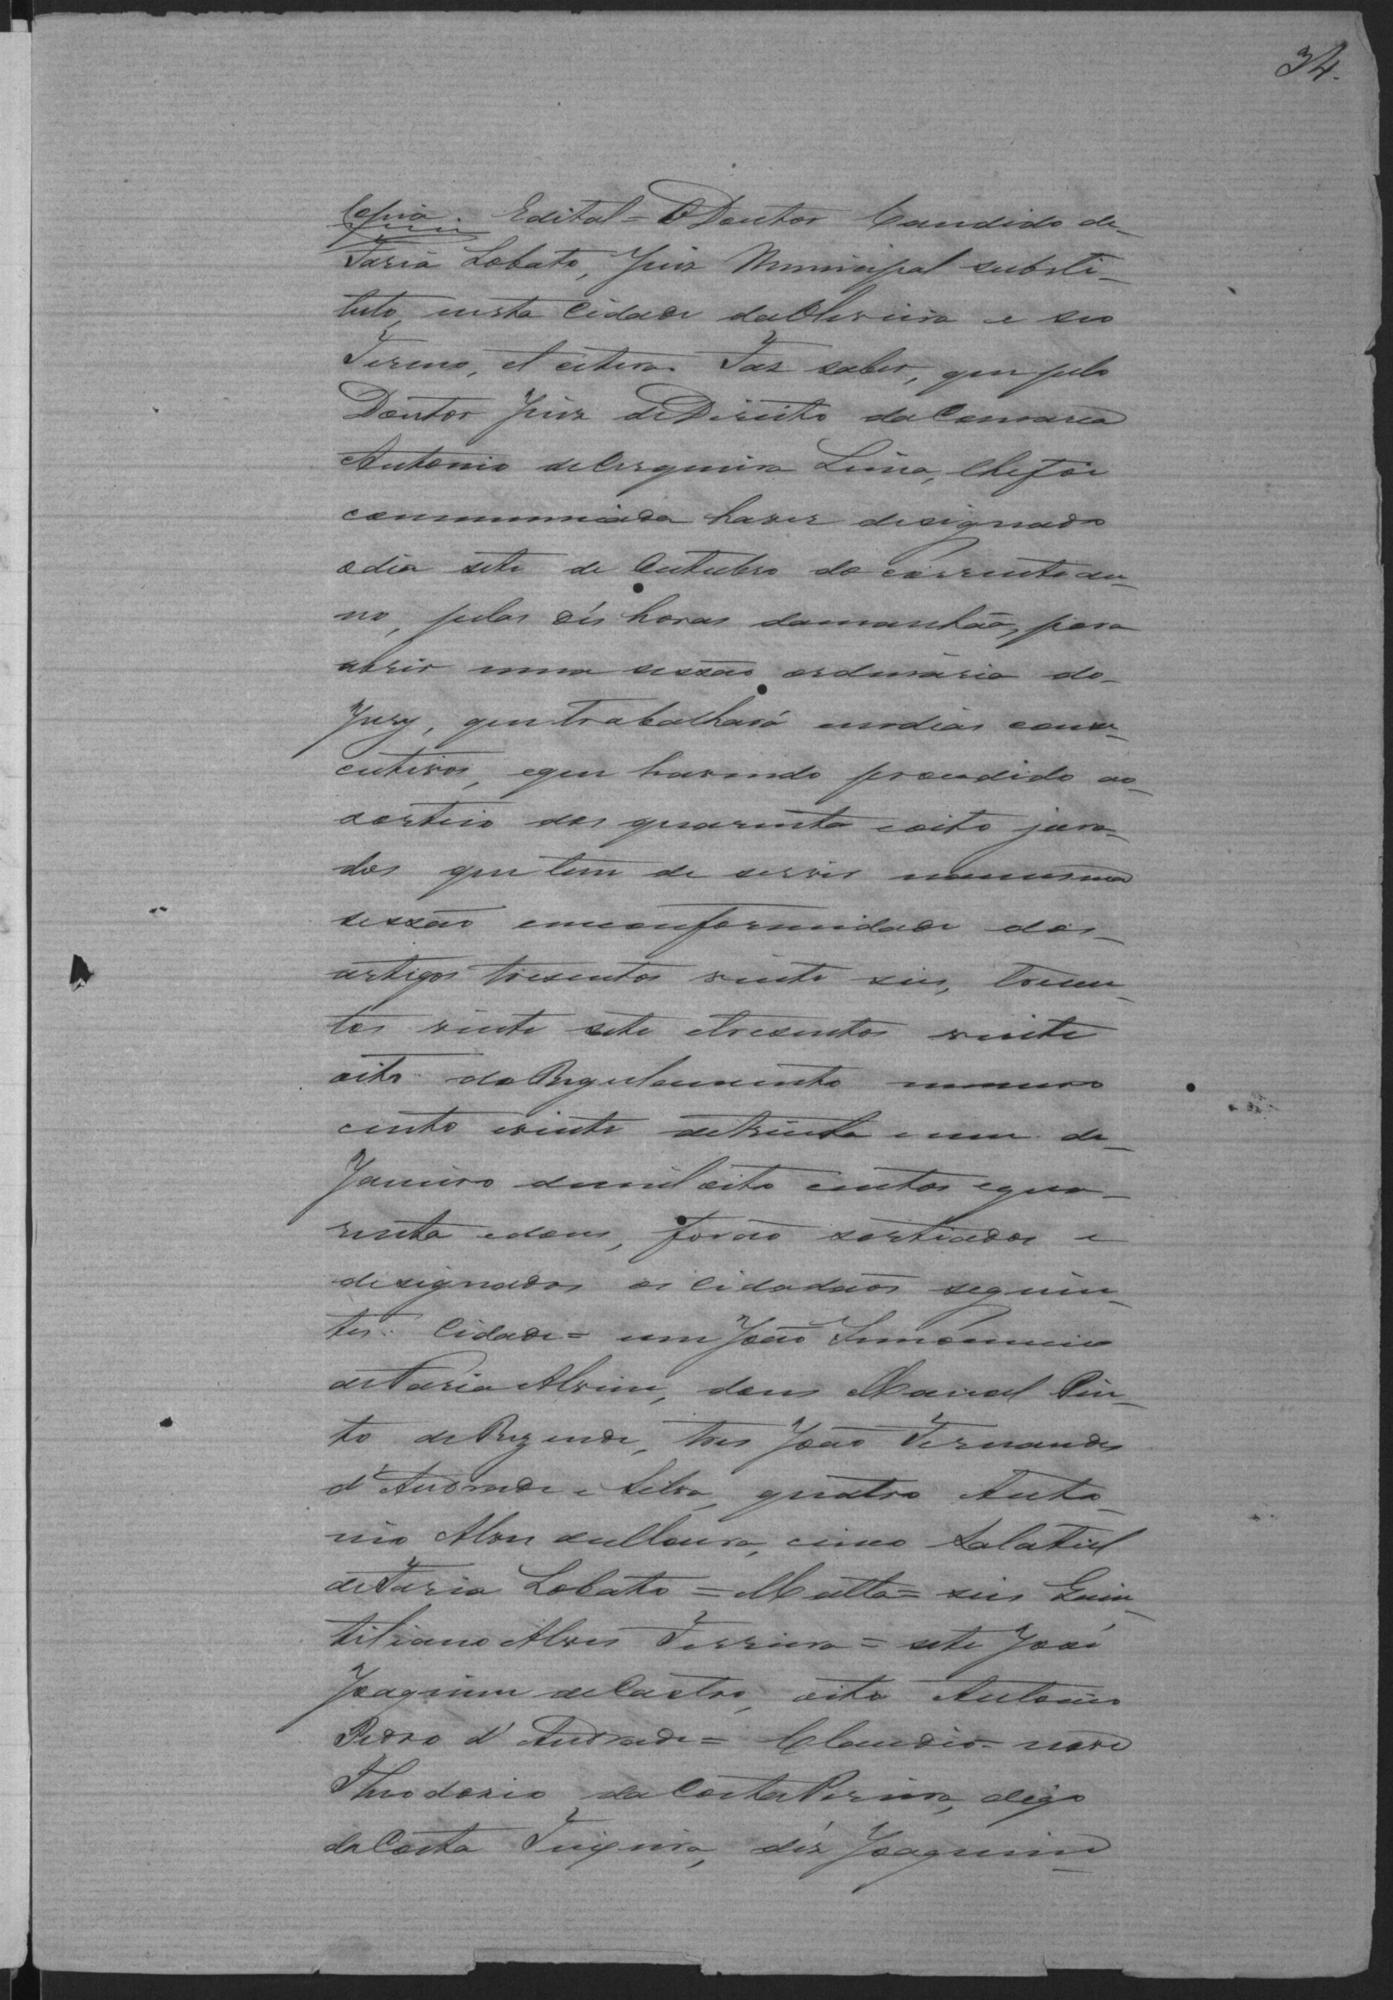 34.
Copia. Edital = O Doutor Candido de
Faria Lobato, Juiz Municipal substi-
tuto, nesta Cidade da Oliveira e seo
Termo, et cetera. Faz saber, que pelo
Doutor Juiz de Direito da Comarca
Antonio de Cerqueira Lima, lhe foi
communicado haver designado
o dia sete de Outubro do corrente an-
no, pelas dés horas da manhãa, para
abrir uma sessão ordinaria do
Jury, que trabalhará em dias conse-
cutivos, e que havendo procedido ao
sorteio dos quarenta e oito jura-
dos que tem de servir na mesma
sessão em conformidade dos
artigos tresentos vinte seis, tresen-
tos vinte sete e tresentos vinte
oito do Regulamento numero
cento e vinte de trinta e um de
Janeiro de mil oito centos e qua-
renta e dous, forão sorteados e
designados os Cidadãos seguin-
tes: Cidade = um João
de Faria Alvim, dous Marçal Pin-
to de Rezende, tres João Fernandes
d'Andrade e Silva, quatro Anto-
nio Alves de Moura, cinco Salatiel
de Faria Lobato = Matta = seis Quin-
tiliano Alves Ferreira = sete José
Joaquim de Castro, oito Antonio
Pedro d'Andrade = Claudio = nove
Theodosio da Costa Pereira, digo
da Costa Teixeira, déz Joaquim